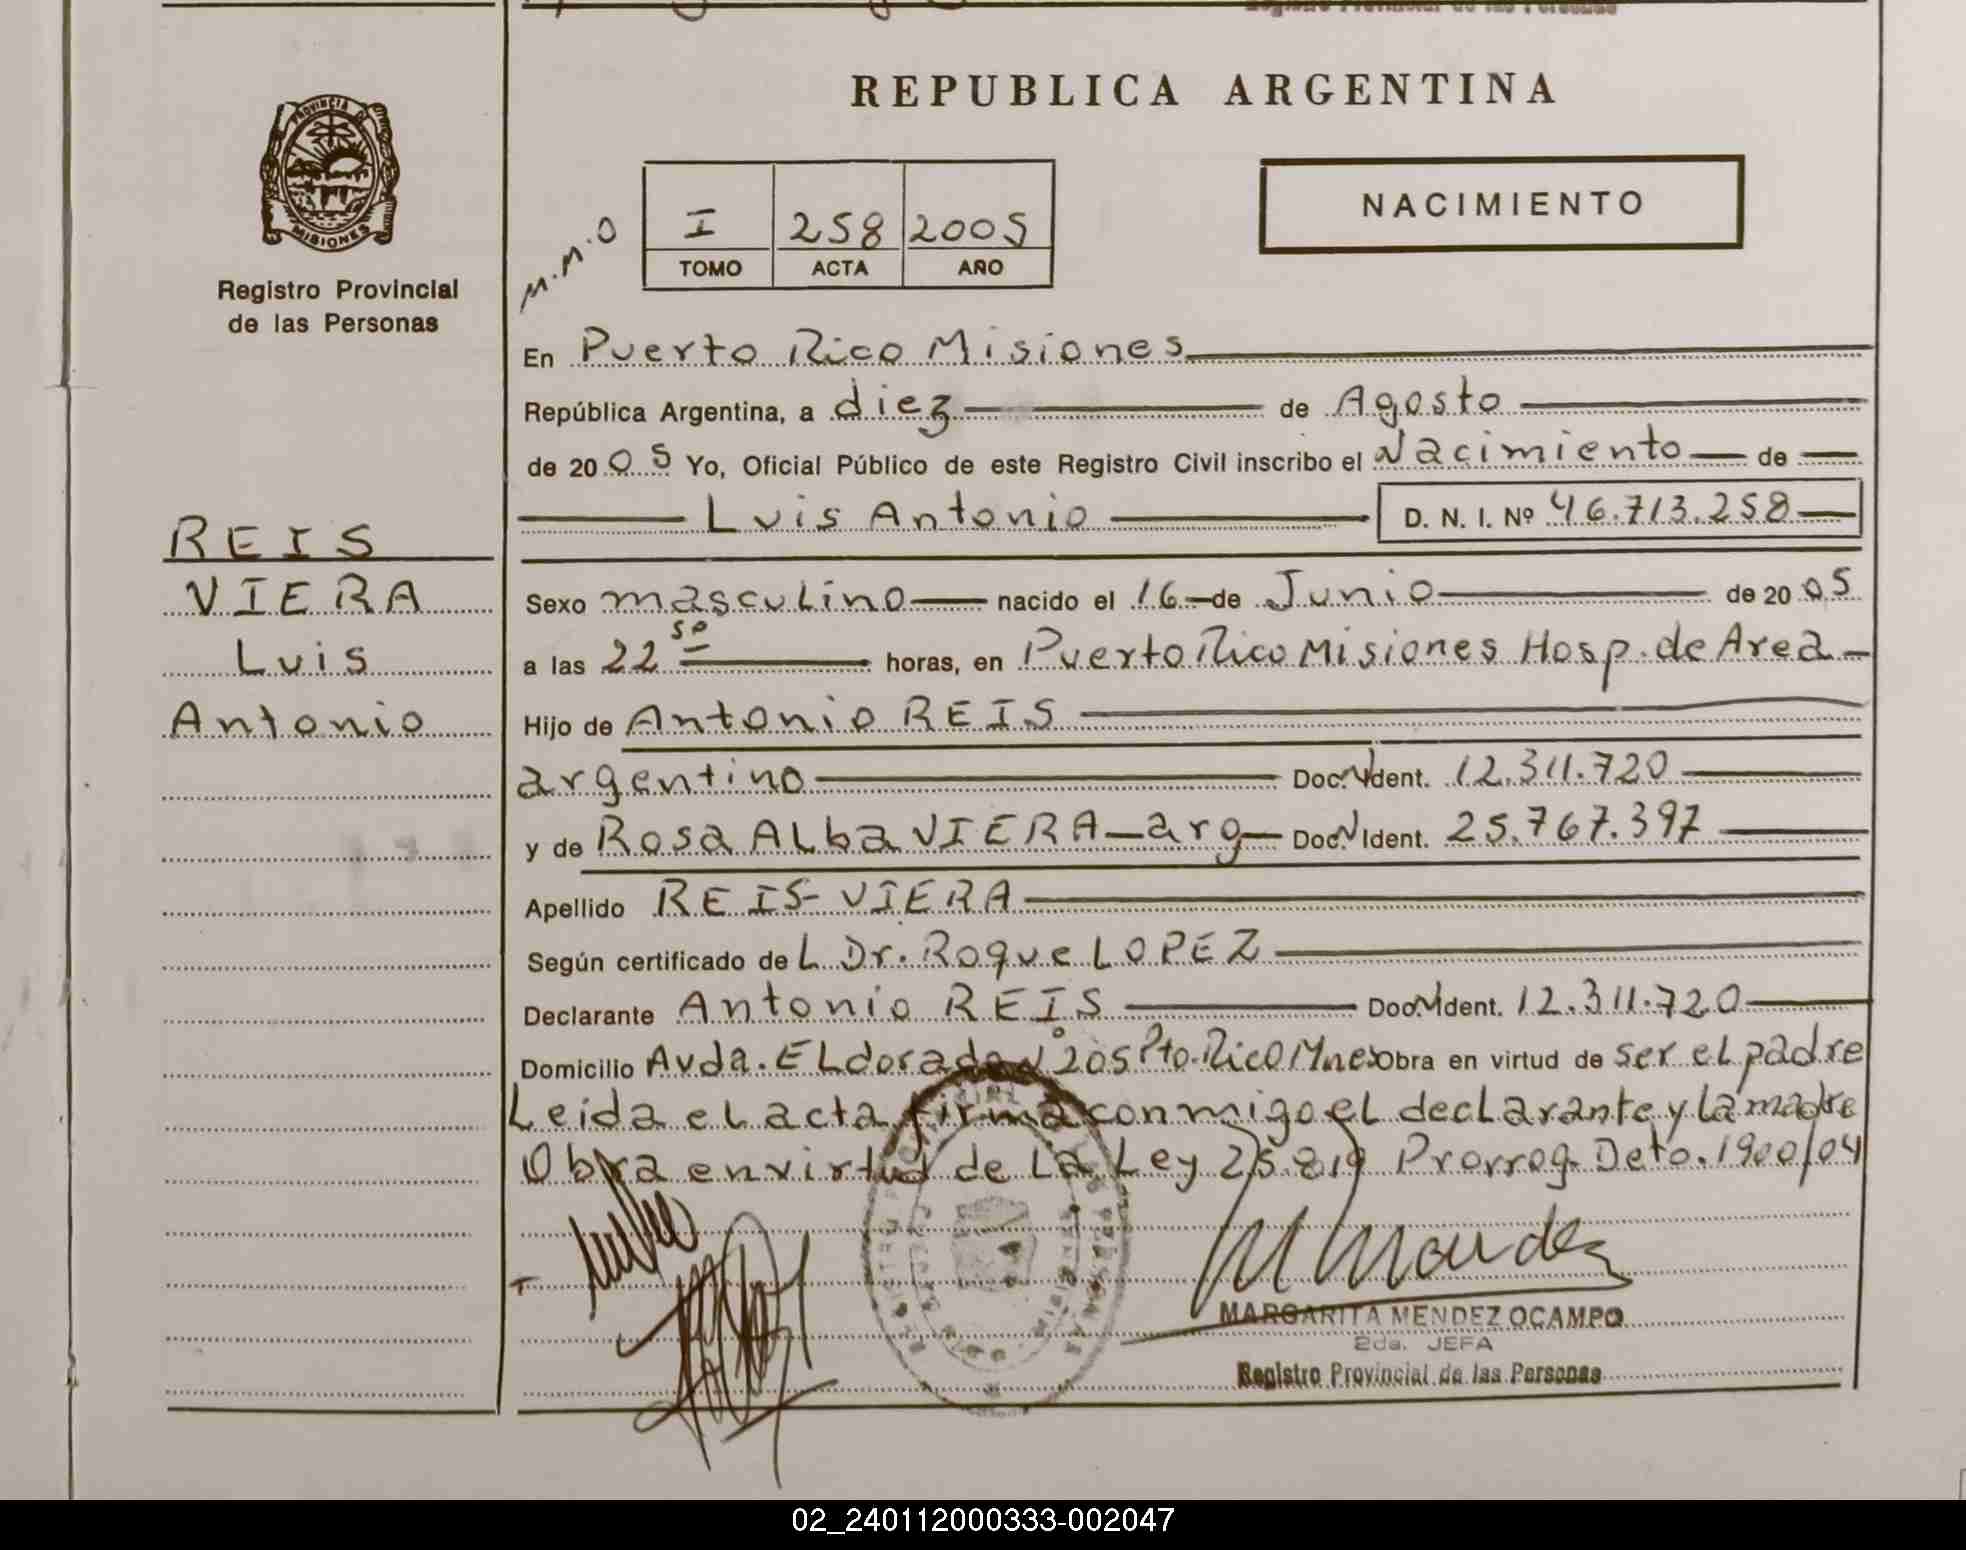 REPUBLICA ARGENTINA
PROVINCIA DE
MISIONES
Registro Provincial
de las Personas
M.M.O
I 258 2005
TOMO ACTA AÑO
NACIMIENTO
REIS
VIERA
Luis
Antonio
En Puerto Rico Misiones
República Argentina, a diez de Agosto
de 2005 Yo, Oficial Público de este Registro Civil inscribo el Nacimiento de
Luis Antonio D. N. I. Nº 46.713.258
Sexo masculino nacido el 16 de Junio de 2005
a las 22 50 horas, en Puerto Rico Misiones Hosp. de Area
Hijo de Antonio REIS
argentino Doc. N Ident. 12.311.720
y de Rosa ALba VIERA arg Doc. N Ident. 25.767.397
Apellido REIS-VIERA
Según certificado de L Dr. Roque LOPEZ
Declarante Antonio REIS Doc. N Ident. 12.311.720
Domicilio Avda. ELdorado Nº 205 Pto. Rico Mnes Obra en virtud de ser el padre
Leida el acta firma conmigo el declarante y la madre
Obra en virtud de La Ley 25.819 Prorrog. Deto. 1900/04
MARGARITA MENDEZ OCAMPO
2da. JEFA
Registro Provincial de las Personas
02_240112000333-002047